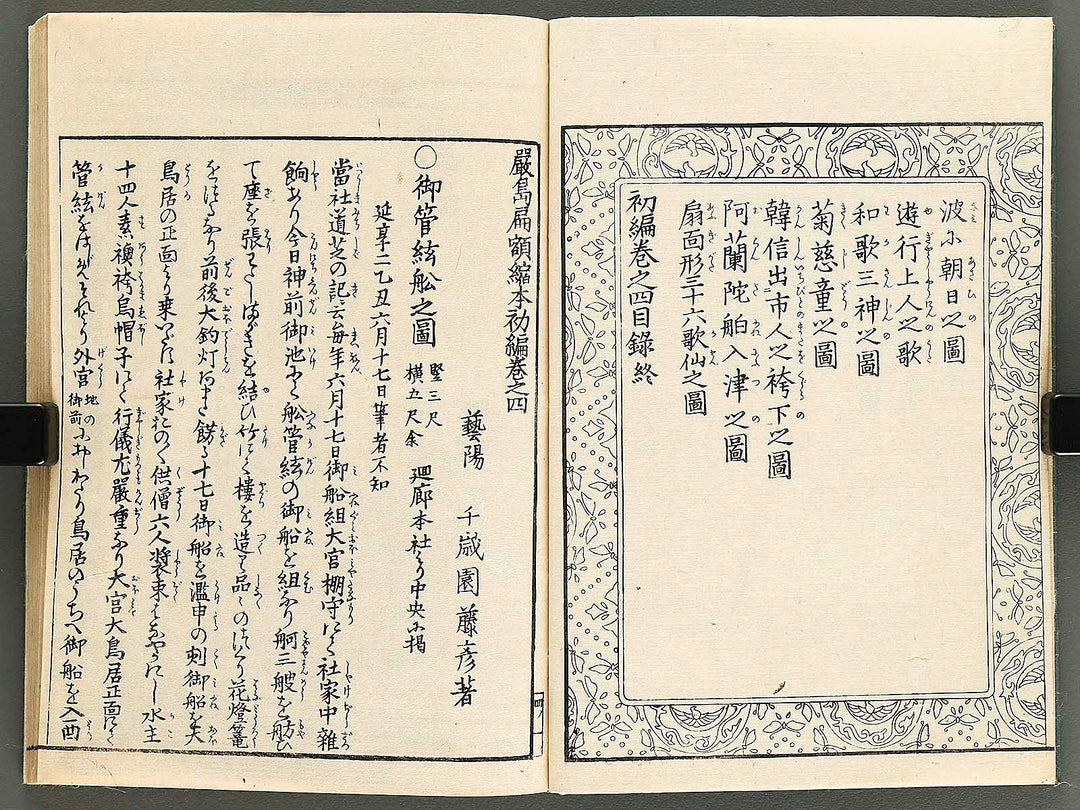 波に朝日之圖
遊行上人之歌
和歌三神之圖
菊慈童之圖
韓信出市人之袴下之圖
阿蘭陀舶入津之圖
扇面形三十六歌仙之圖
初編巻之四目錄終
嚴島扁額縮本初編巻之四
藝陽 千歳園藤彦著
○御管絃舩之圖 竪三尺 横五尺余 廻廊本社ゟ中央に掲
延享二乙丑六月十七日筆者不知
當社道芝の記云毎年六月十七日御船組大宮棚守にて社家中雜
餉あり今日神前御池にて舩管絃の御船を組なり舸三艘を舫ひ
て座を張わたしはしを結ひ竹にて樓を造り品々のほり花燈篭
をほるなり前後大釣灯あまた餝る十七日御船を濫申の刻御船を夫
鳥居の正面より乗いたす社家おのく供僧六人裝束をあやうにし水主
十四人素襖袴烏帽子にて行儀尤嚴重なり大宮大鳥居正面にて
管絃をはしそれより外宮 地の御前 にわたり鳥居のうちへ御船を入西